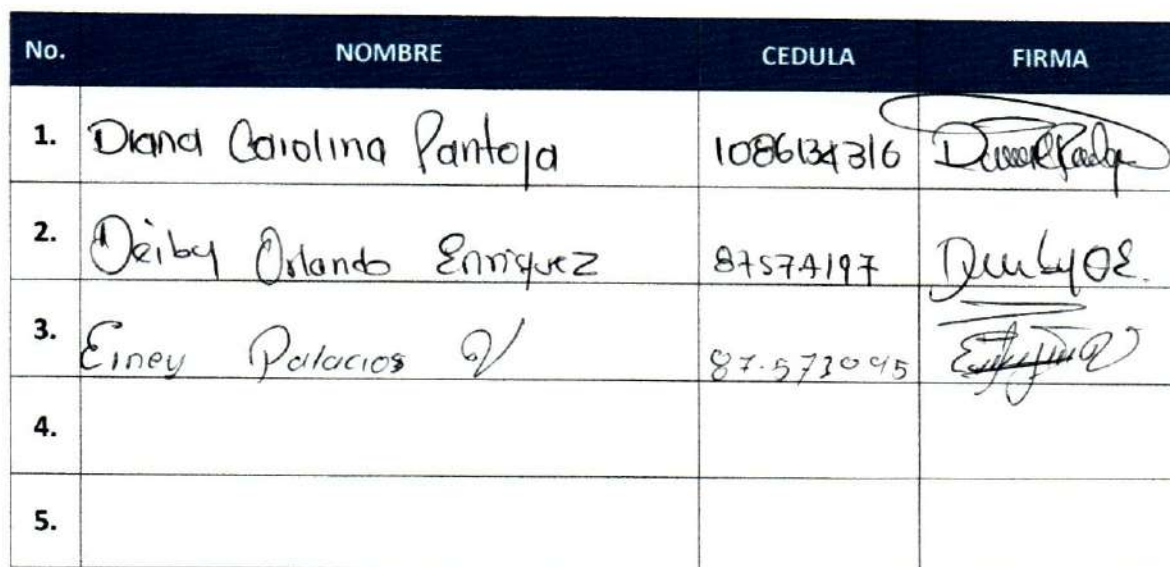 No. NOMBRE CEDULA FIRMA
1. Diana Carolina Pantoja 1086134316
2. Deiby Orlando Enriquez 87574197 Deiby OE.
3. Einey Palacios V 87.573095
4.
5.